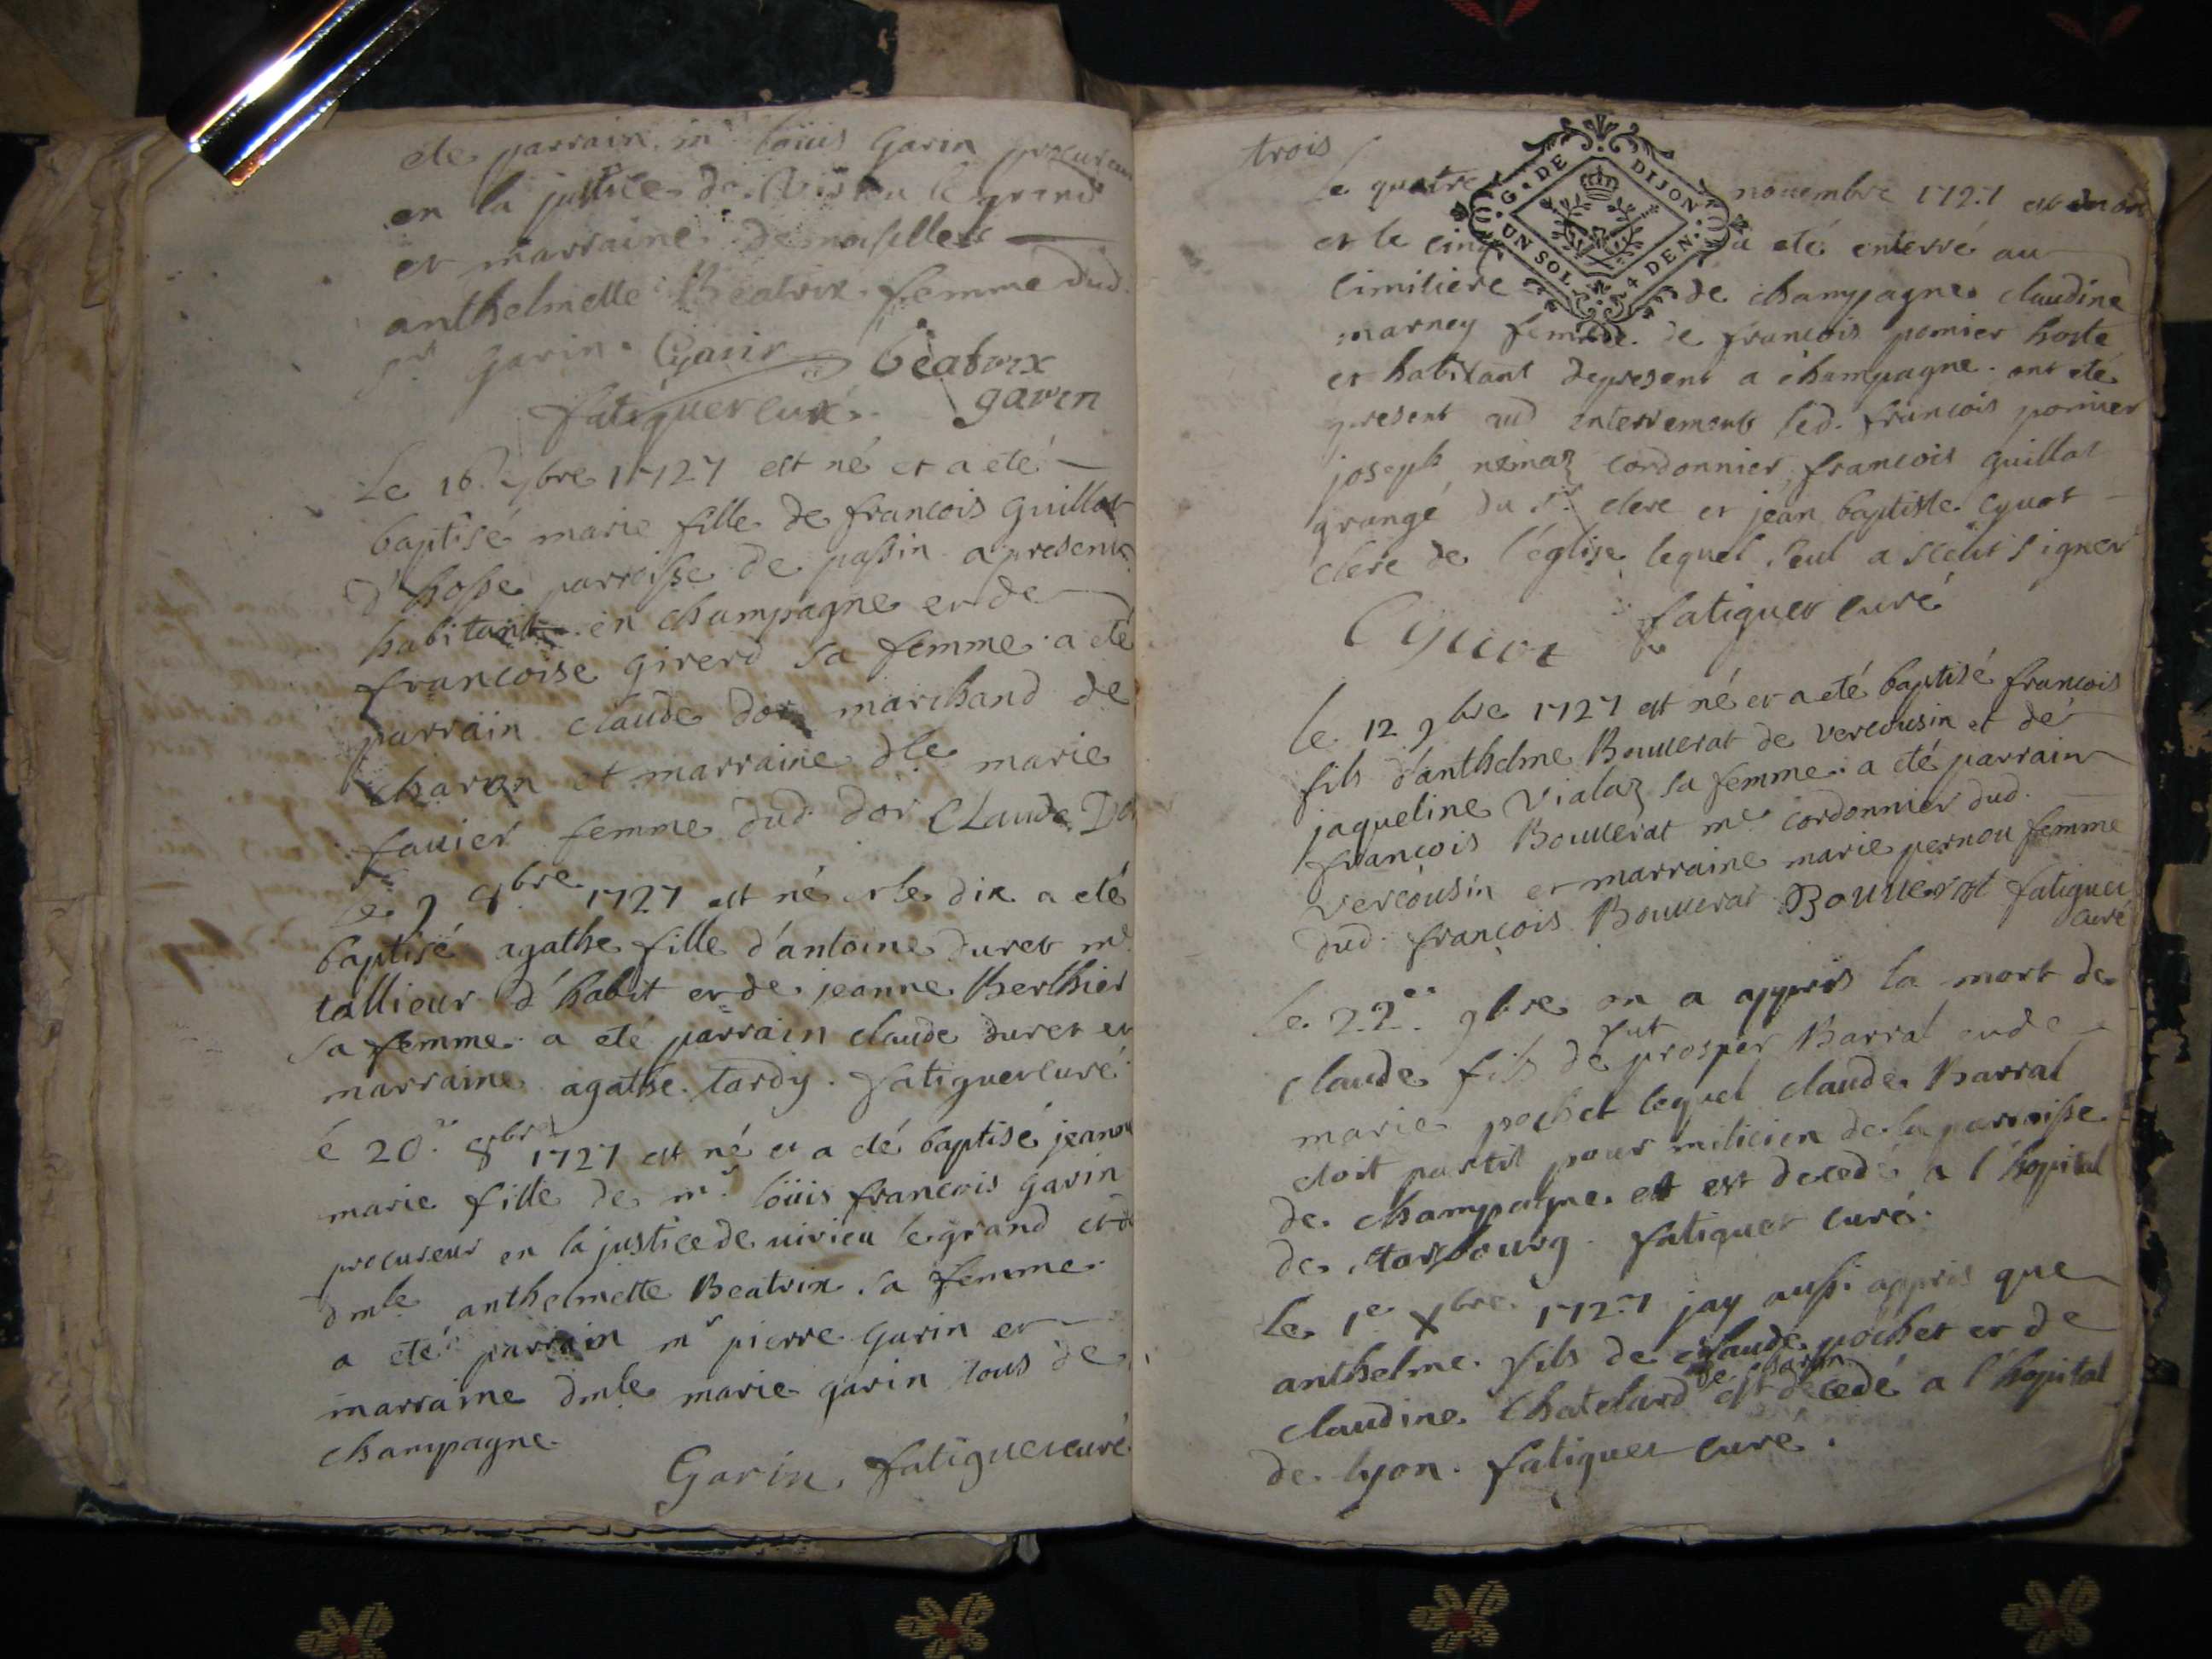 eté parrain mr loüis Garin procureur
en la justice de Virieu le grand
et marraine demoiselle
anthelmette Beatrix femme dud.
sr garin. Garin beatrix
fatiguet curé. garin
Le 16. 7bre 1727 est né et a eté
baptisé marie fille de francois Guillot
d'hosse parroisse de passin a present
habitant en champagne et de
francoise girerd sa femme. a eté
parrain claude dor marchand de
charon et marraine dle marie
fauier femme dud. dor Claude Dor
Le 9 8bre 1727 est né et le dix a eté
baptisé agathe fille d'antoine duret me
tallieur d'habit et de jeanne Berthier
sa femme. a eté parrain claude duret et
marraine agathe tardy. fatiguet curé
é 20. 8bre 1727 est né et a eté baptisé jeanne
marie fille de mr loüis francois Garin
procureur en la justice de uirieu le grand et de
dmle anthelmette Beatrix sa femme
a eté parrain mr pierre Garin et
marraine dmle marie garin tous de
champagne.
Garin. fatiguet curé
trois
G. DE DIJON
UN SOL 4 DEN.
Le quatre novembre 1727 est mort
et le cinq a eté enterré au
cimitiere de champagne claudine
marney femme de francois pomier hoste
et habitant depresent a champagne. ont eté
present aud enterrement led. francois pomier
joseph nemoz cordonnier, francois Guillot
grangé du sr clerc et jean baptiste Cyuot
clerc de l'église lequel seul a sceut signer
Cyuot fatiguet curé
le 12 9bre 1727 est né et a eté baptisé francois
fils d'anthelme Bouuerat de vercousin et de
jaqueline vialaz sa femme. a eté parrain
françois Bouuerat me cordonnier dud.
vercousin et marraine marie pernou femme
dud. françois Bouuerat Bouuerat fatiguet
curé
le 22e. 9bre on a appris la mort de
claude fils de fut prosper Barral et de
marie pochet lequel claude Barral
étoit partit pour milicien de la parroisse
de champagne et est decedé a l'hopital
de starbourg. fatiguet curé.
le 1e Xbre. 1727 jay aussi appris que
anthelme fils de claude pochet et de
claudine Chatelard de charon est decedé a l'hopital
de lyon. fatiguet curé.